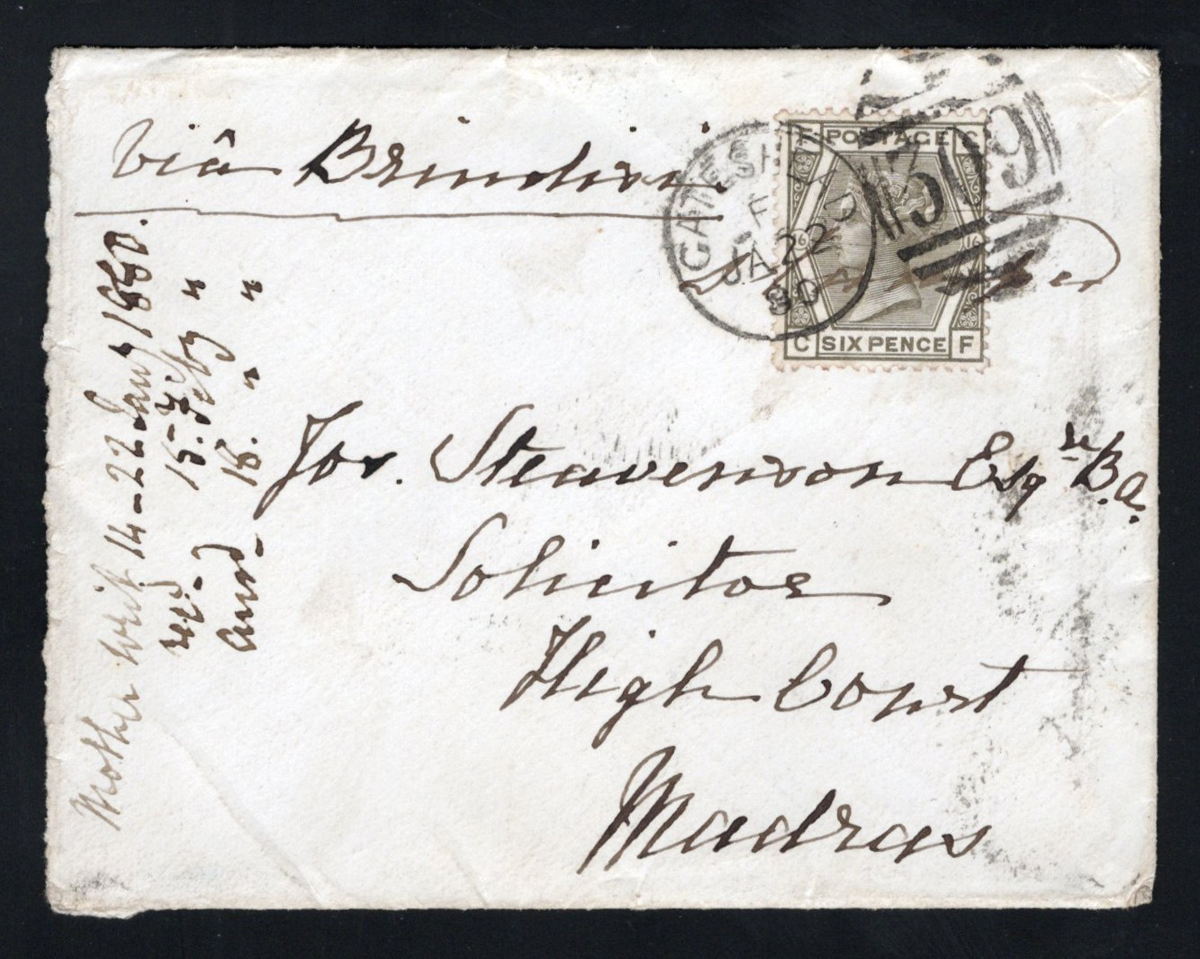 viâ Brindisi
GATESHEAD
F
JA 22
80
309
F POSTAGE C
16 16
C SIX PENCE F
Jos. Steavenson Esqre B.A.
Solicitor
High Court
Madras
Mother writ 14 - 22 Jany 1880.
recd - 15. Feby "
Answd - 18. " "